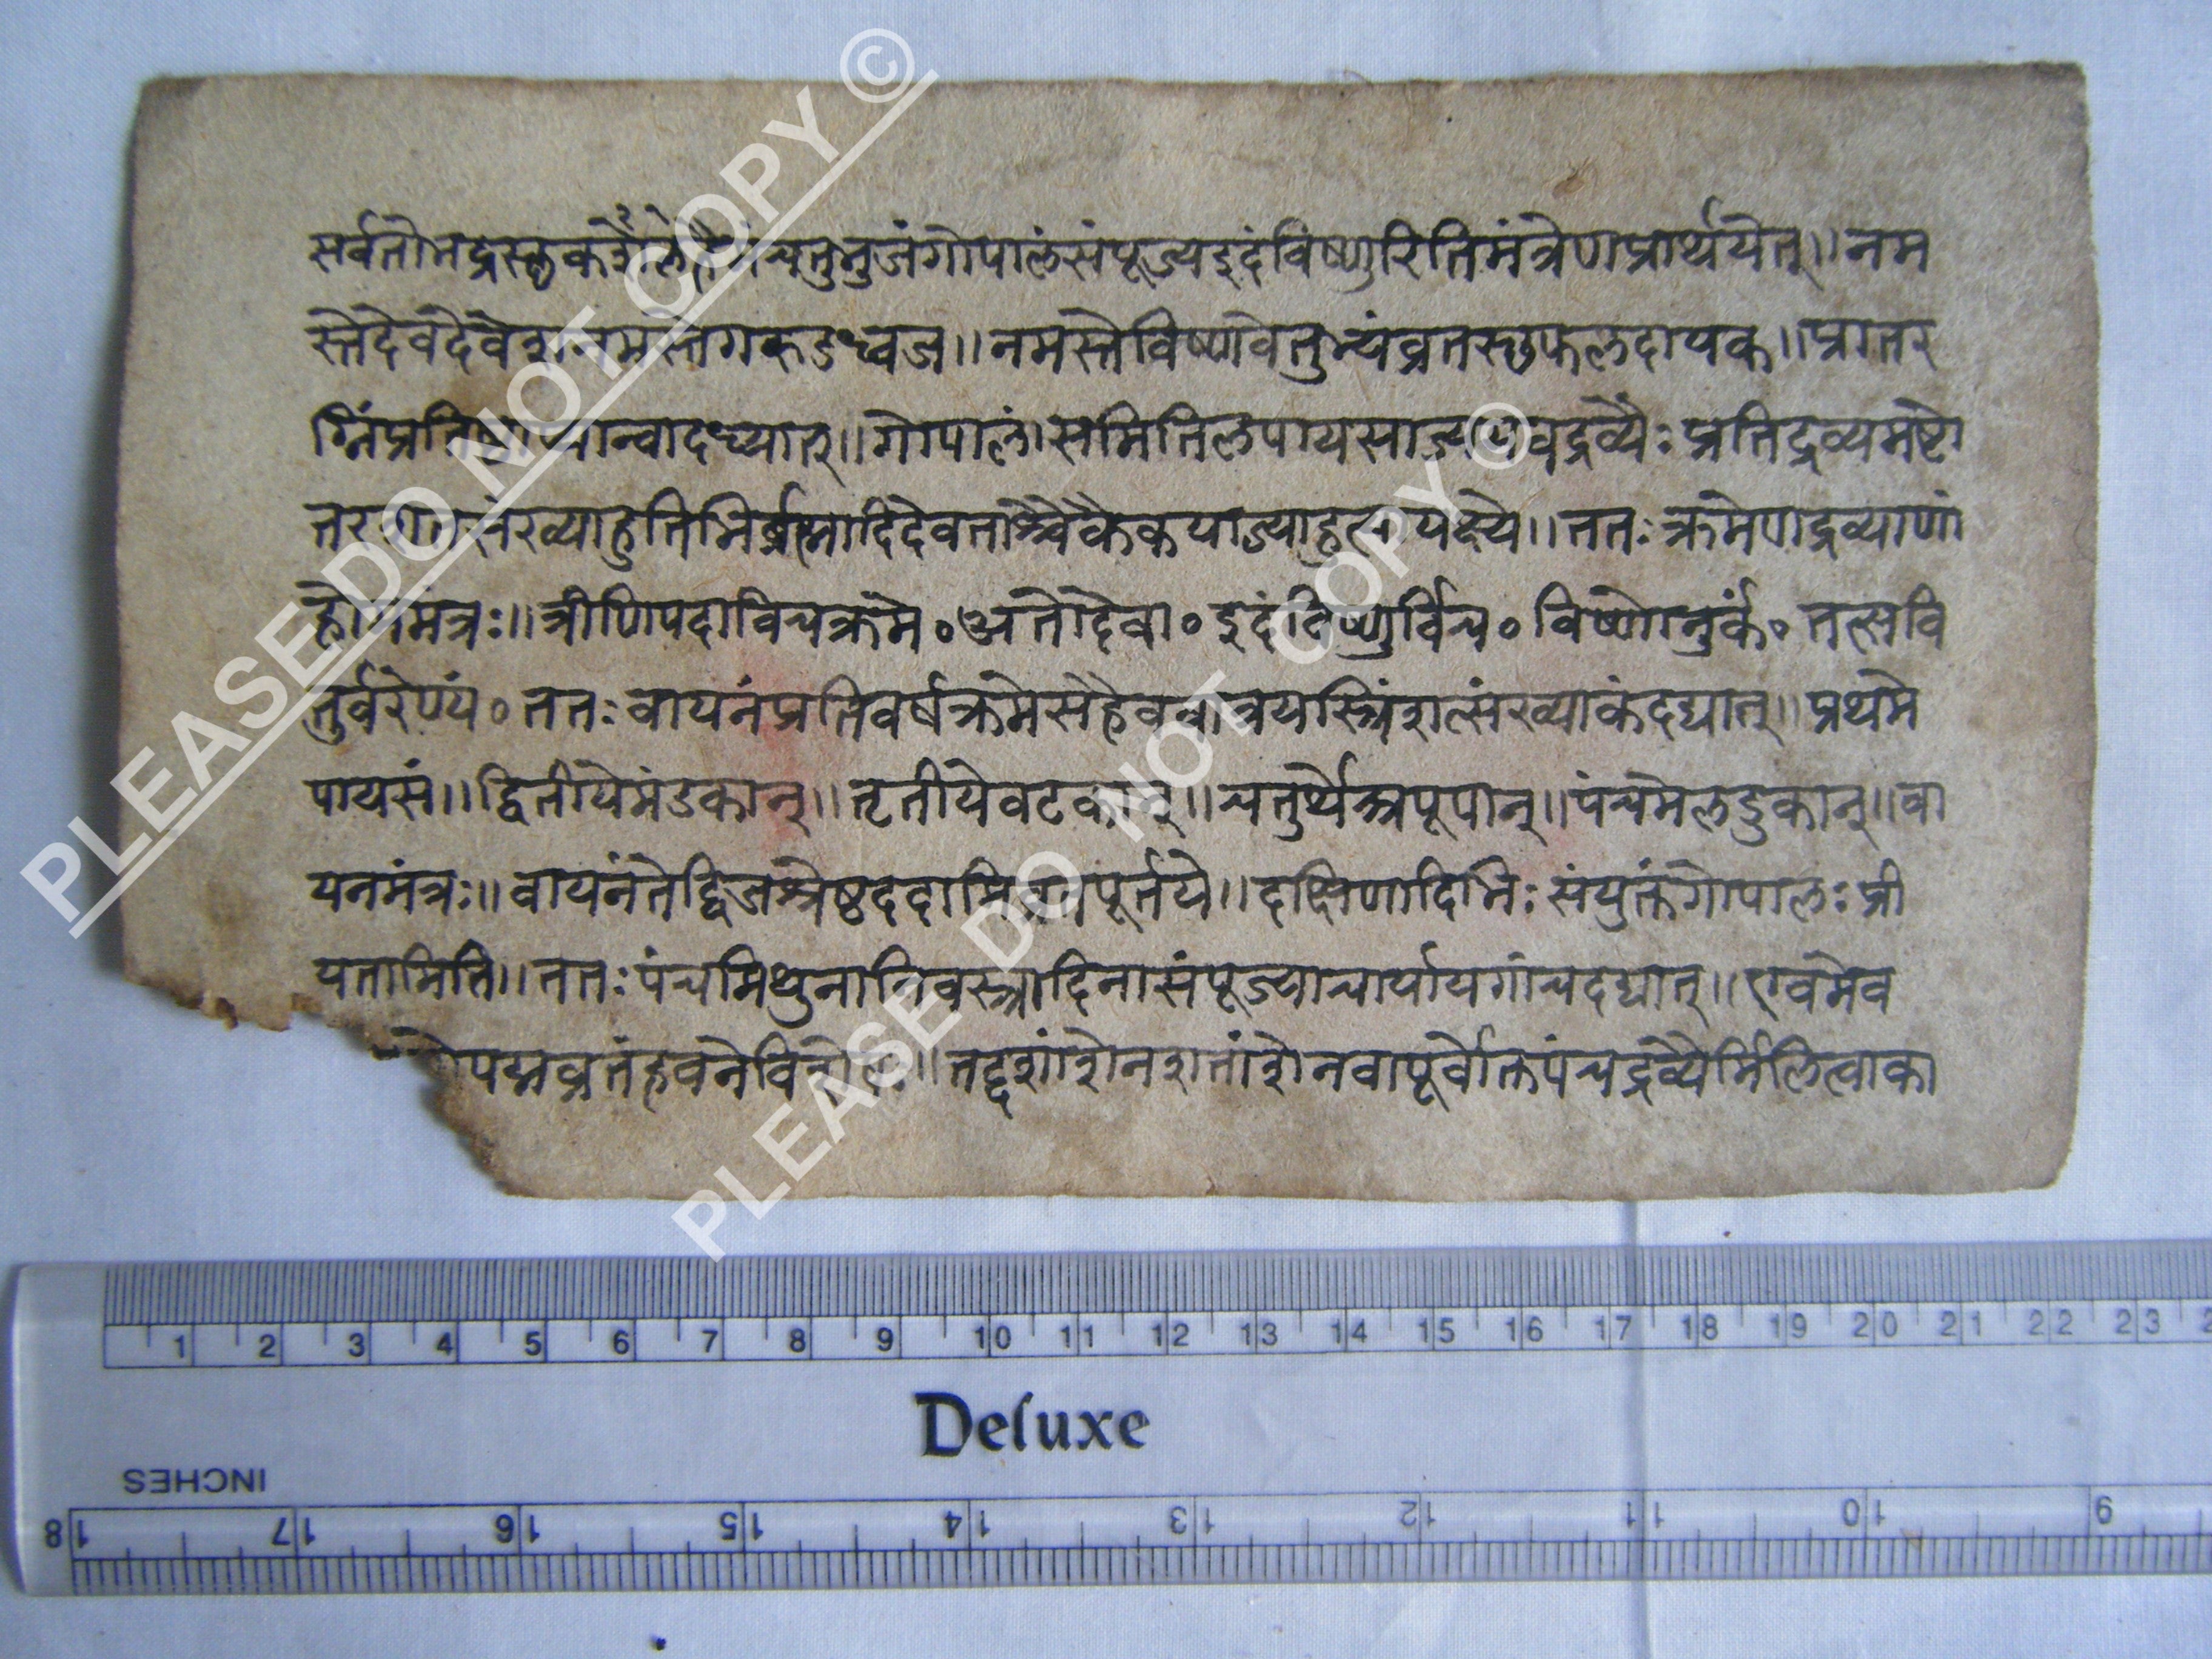 सर्वतोभद्रस्छकलशे चतुर्भुजंगोपालंसंपूज्यइदंविष्णुरितिमंत्रेणप्रार्थयेत्॥नम
स्तेदेवदेवेशनमस्तेगरुडध्वज॥नमस्तेविष्णवेतुभ्यंव्रतस्छफलदायक॥प्रातर
ग्निंप्रतिष्ठाप्यान्वादध्यात्॥गोपालं।समितिलपायसाज्य द्रव्यैःप्रतिद्रव्यमष्टो
त्तर संख्याहुतिभिर्ब्रह्मादिदेवताश्चैकैकयाज्याहुत्यायक्ष्ये॥ततःक्रमेणद्रव्याणां
होममंत्रः॥त्रीणिपदाविचक्रमे॰अतोदेवा॰इदंविष्णुर्विच॰विष्णोनुर्कं॰तत्सवि
तुर्वरेण्यं॰ततःवायनंप्रतिवर्षक्रमेसहैववात्रयस्त्रिंशत्संख्याकंदद्यात्॥प्रथमे
पायसं॥द्वितीयेमंडकान्॥तृतीयेवटकान्॥चतुर्थेअपूपान्॥पंचमेलडुकान्॥वा
यनमंत्रः॥वायनंतेद्विजश्रेष्ठददामिव्रतपूर्तये॥दक्षिणादिभिःसंयुक्तंगोपालःप्री
यतामिति॥ततःपंचमिथुनानिवस्त्रादिनासंपूज्याचार्यायगांचदद्यात्॥एवमेव
पद्मव्रतंहवने ॥तद्दशांशेनशतांशेनवापूर्वोक्तपंचद्रव्यैर्मिलित्वाका
1 2 3 4 5 6 7 8 9 10 11 12 13 14 15 16 17 18 19 20 21 22 23
Deluxe
INCHES
18 17 16 15 14 13 12 11 10 9
PLEASE DO NOT COPY ©
PLEASE DO NOT COPY ©